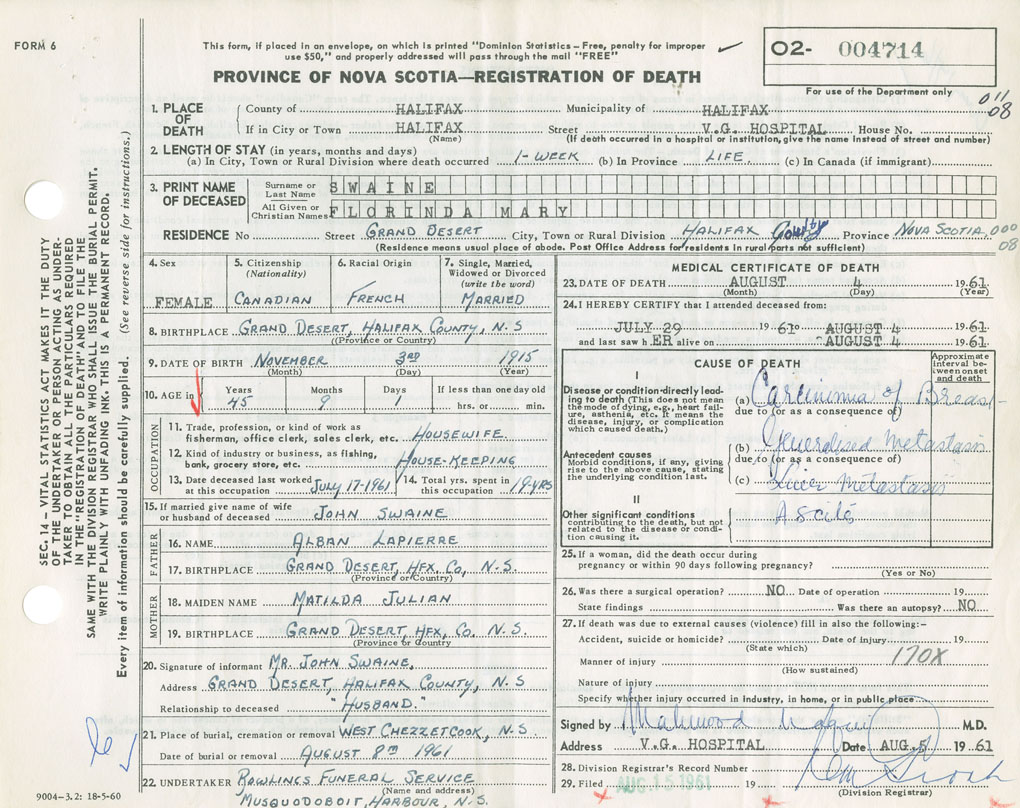 FORM 6
This form, if placed in an envelope, on which is printed "Dominion Statistics – Free, penalty for improper
use $50," and properly addressed will pass through the mail "FREE"
O2- 004714
PROVINCE OF NOVA SCOTIA—REGISTRATION OF DEATH
For use of the Department only
011
08
1. PLACE OF DEATH
County of HALIFAX Municipality of HALIFAX
If in City or Town HALIFAX Street V.G. HOSPITAL House No.
(Name) (If death occurred in a hospital or institution, give the name instead of street and number)
2. LENGTH OF STAY (in years, months and days)
(a) In City, Town or Rural Division where death occurred 1-WEEK (b) In Province LIFE (c) In Canada (if immigrant)
3. PRINT NAME OF DECEASED
Surname or Last Name SWAINE
All Given or Christian Names FLORINDA MARY
RESIDENCE No Street GRAND DESERT City, Town or Rural Division HALIFAX County Province NOVA SCOTIA 000
08
(Residence means usual place of abode. Post Office Address for residents in rural parts not sufficient)
4. Sex FEMALE
5. Citizenship (Nationality) CANADIAN
6. Racial Origin FRENCH
7. Single, Married, Widowed or Divorced (write the word) MARRIED
8. BIRTHPLACE GRAND DESERT, HALIFAX COUNTY, N.S
(Province or Country)
9. DATE OF BIRTH NOVEMBER 3RD 1915
(Month) (Day) (Year)
10. AGE in Years 45 Months 9 Days 1 If less than one day old hrs. or min.
OCCUPATION
11. Trade, profession, or kind of work as
fisherman, office clerk, sales clerk, etc. HOUSEWIFE.
12. Kind of industry or business, as fishing,
bank, grocery store, etc. HOUSE-KEEPING
13. Date deceased last worked at this occupation JULY 17-1961
14. Total yrs. spent in this occupation 19-YRS
15. If married give name of wife
or husband of deceased JOHN SWAINE
FATHER
16. NAME ALBAN LAPIERRE
17. BIRTHPLACE GRAND DESERT, HFX. CO, N.S.
(Province or Country)
MOTHER
18. MAIDEN NAME MATILDA JULIAN
19. BIRTHPLACE GRAND DESERT, HFX, CO. N.S.
(Province or Country)
20. Signature of informant MR. JOHN SWAINE.
Address GRAND DESERT, HALIFAX COUNTY, N.S
Relationship to deceased "HUSBAND."
21. Place of burial, cremation or removal WEST CHEZZETCOOK, N.S
Date of burial or removal AUGUST 8TH 1961
22. UNDERTAKER ROWLINGS FUNERAL SERVICE
(Name and address)
MUSQUODOBOIT, HARBOUR, N.S.
9004-3.2: 18-5-60
MEDICAL CERTIFICATE OF DEATH
23. DATE OF DEATH AUGUST 4 1961
(Month) (Day) (Year)
24. I HEREBY CERTIFY that I attended deceased from:
JULY 29 1961 to AUGUST 4 1961
and last saw hER alive on AUGUST 4 1961
CAUSE OF DEATH
Approximate interval between onset and death
I
Disease or condition directly leading to death (This does not mean the mode of dying, e.g., heart failure, asthenia, etc. It means the disease, injury, or complication which caused death.)
(a) Carcinoma of Breast
due to (or as a consequence of)
Antecedent causes
Morbid conditions, if any, giving rise to the above cause, stating the underlying condition last.
(b) Generalised Metastasis
due to (or as a consequence of)
(c) Liver Metastasis
II
Other significant conditions
contributing to the death, but not related to the disease or condition causing it.
25. If a woman, did the death occur during
pregnancy or within 90 days following pregnancy?
(Yes or No)
26. Was there a surgical operation? NO Date of operation 19
State findings Was there an autopsy? NO
27. If death was due to external causes (violence) fill in also the following:-
Accident, suicide or homicide? Date of injury 19
(State which)
Manner of injury 170X
(How sustained)
Nature of injury
Specify whether injury occurred in industry, in home, or in public place
Signed by M.D.
Address V.G. HOSPITAL Date AUG. 5 1961
28. Division Registrar's Record Number
29. Filed AUG 15 1961 19
(Division Registrar)
SEC. 14 – VITAL STATISTICS ACT MAKES IT THE DUTY
OF THE UNDERTAKER OR PERSON ACTING AS UNDER-
TAKER TO OBTAIN ALL THE PARTICULARS REQUIRED
IN THE "REGISTRATION OF DEATH" AND TO FILE THE
SAME WITH THE DIVISION REGISTRAR WHO SHALL ISSUE THE BURIAL PERMIT.
WRITE PLAINLY WITH UNFADING INK. THIS IS A PERMANENT RECORD.
Every item of information should be carefully supplied. (See reverse side for instructions.)